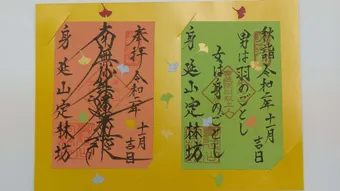 秋詣 令和二年 十一月 吉日
男は羽のごとし
女は身のごとし
身延山 定林坊
奉拝 令和二年 十一月 吉日
南無妙法蓮華経
身延山 定林坊